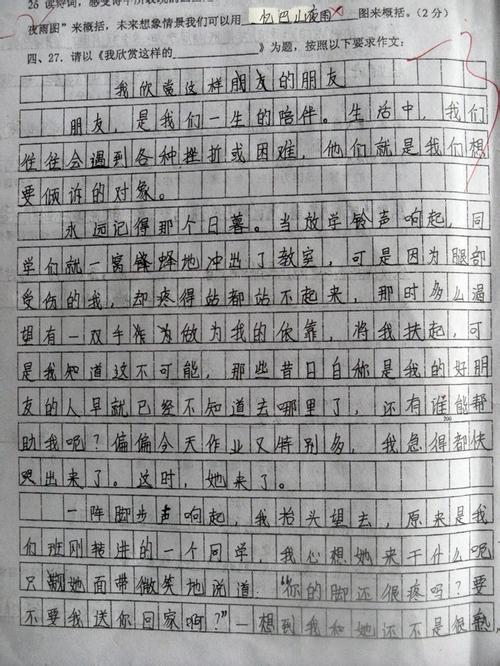 26 读诗词，感受诗中所表现的
夜雨图"来概括，未来想象情景我们可以用 忆巴山夜雨 图来概括。(2分)
四、27. 请以《我欣赏这样的____________》为题，按照以下要求作文：
我欣赏这样朋友的朋友
朋友，是我们一生的陪伴。生活中，我们
往往会遇到各种挫折或困难，他们就是我们想
要倾诉的对象。
永远记得那个日暮。当放学铃声响起，同
学们就一窝锋蜂地冲出了教室，可是因为腿部
受伤的我，却疼得站都站不起来，那时多么渴
望有一双手作为做为我的依靠，将我扶起，可
是我知道这不可能，那些昔日自称是我的好朋
友的人早就已经不知道去哪里了，还有谁能帮
200
助我呢？偏偏今天作业又特别多，我急得都快
哭出来了。这时，她来了。
一阵脚步声响起，我抬头望去，原来是我
们班刚转进的一个同学，我心想她来干什么呢
只觌她面带微笑地说道："你的脚还很疼吗？要
不要我送你回家啊？"一想到我和她还不是很熟，